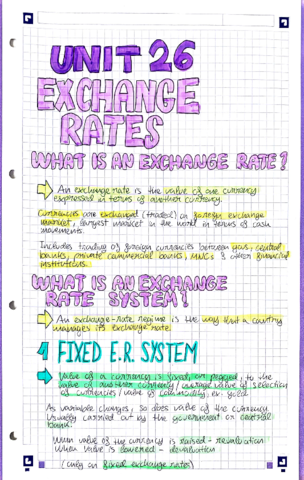 UNIT 26
EXCHANGE
RATES
WHAT IS AN EXCHANGE RATE?
An exchange rate is the value of one currency
expressed in terms of another currency.
Currencies are exchanged (traded) in foreign exchange
market, largest market in the world in terms of cash
movements.
Includes trading of foreign currencies between gov, central
banks, private commercial banks, MNCs & other financial
institutions.
WHAT IS AN EXCHANGE
RATE SYSTEM?
An exchange-rate regime is the way that a country
manages its exchange rate.
1 FIXED E.R. SYSTEM
Value of a currency is fixed, or pegged, to the
value of another currency / average value of selection
of currencies / value of commodity, ex. gold
As variable changes, so does value of the currency
Usually carried out by the government or central
bank.
When value of the currency is raised - revaluation
When value is lowered - devaluation
(only on fixed exchange rates)